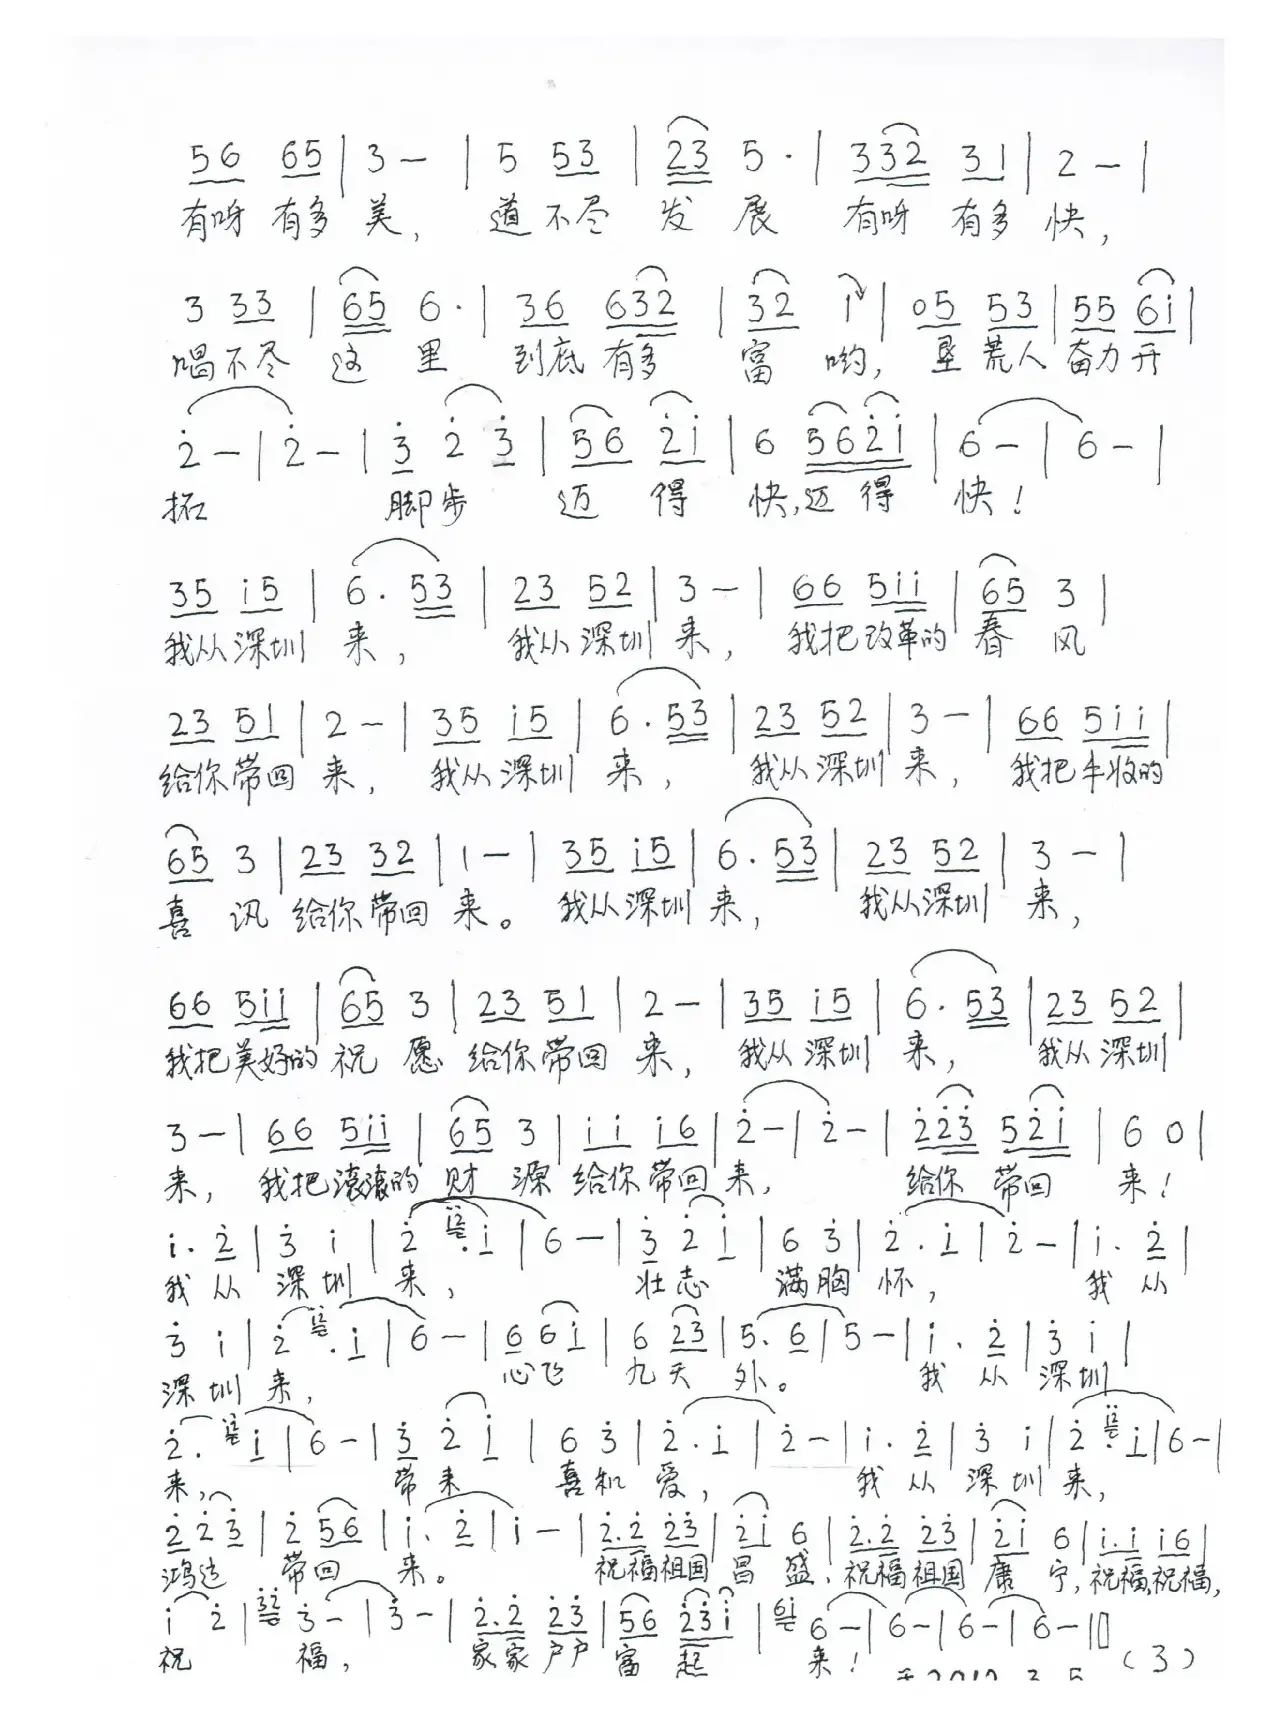 56 65 | 3 — | 5 53 | 23 5 · | 332 31 | 2 — |
有呀 有多 美, 道 不尽 发 展 有呀 有多 快,
3 33 | 65 6 · | 36 632 | 32 i | 05 53 | 55 6i |
唱 不尽 这 里 到底 有多 富 哟, 垦 荒人 奋力 开
2̇ — | 2̇ — | 3̇ 2̇ 3̇ | 56 2̇i | 6 562̇i | 6 — | 6 — |
拓 脚步 迈 得 快,迈 得 快!
35 i5 | 6 · 53 | 23 52 | 3 — | 66 5ii | 65 3 |
我从深圳 来, 我从深圳 来, 我把改革的 春 风
23 51 | 2 — | 35 i5 | 6 · 53 | 23 52 | 3 — | 66 5ii |
给你带回 来, 我从深圳 来, 我从深圳 来, 我把丰收的
65 3 | 23 32 | 1 — | 35 i5 | 6 · 53 | 23 52 | 3 — |
喜 讯 给你带回 来。 我从深圳 来, 我从深圳 来,
66 5ii | 65 3 | 23 51 | 2 — | 35 i5 | 6 · 53 | 23 52 |
我把美好的 祝 愿 给你带回 来, 我从深圳 来, 我从深圳
3 — | 66 5ii | 65 3 | i i i6 | 2̇ — | 2̇ — | 2̇2̇3̇ 52̇i | 6 0 |
来, 我把滚滚的 财 源 给你带回 来, 给你 带回 来!
i · 2̇ | 3̇ i | 2̇ · i | 6 — | 3̇ 2̇ i | 6 3̇ | 2̇ · i | 2̇ — | i · 2̇ |
我 从 深圳 来, 壮志 满胸 怀, 我 从
3̇ i | 2̇ · i | 6 — | 6 6 i | 6 2̇3̇ | 5 · 6 | 5 — | i · 2̇ | 3̇ i |
深圳 来, 心飞 九天 外。 我 从 深圳
2̇ · i | 6 — | 3̇ 2̇ i | 6 3̇ | 2̇ · i | 2̇ — | i · 2̇ | 3̇ i | 2̇ · i | 6 — |
来, 带来 喜和 爱, 我 从 深圳 来,
2̇ 2̇ 3̇ | 2̇ 56 | i · 2̇ | i — | 2̇ · 2̇ 2̇3̇ | 2̇i 6 | 2̇ · 2̇ 2̇3̇ | 2̇i 6 | i · i i6 |
鸿运 带回 来。 祝福祖国 昌 盛, 祝福祖国 康 宁, 祝福,祝福,
i 2̇ | 3̇ — | 3̇ — | 2̇ · 2̇ 2̇3̇ | 56 2̇3̇i | 6 — | 6 — | 6 — | 6 — ‖
祝 福, 家家户户 富 起 来! (3)